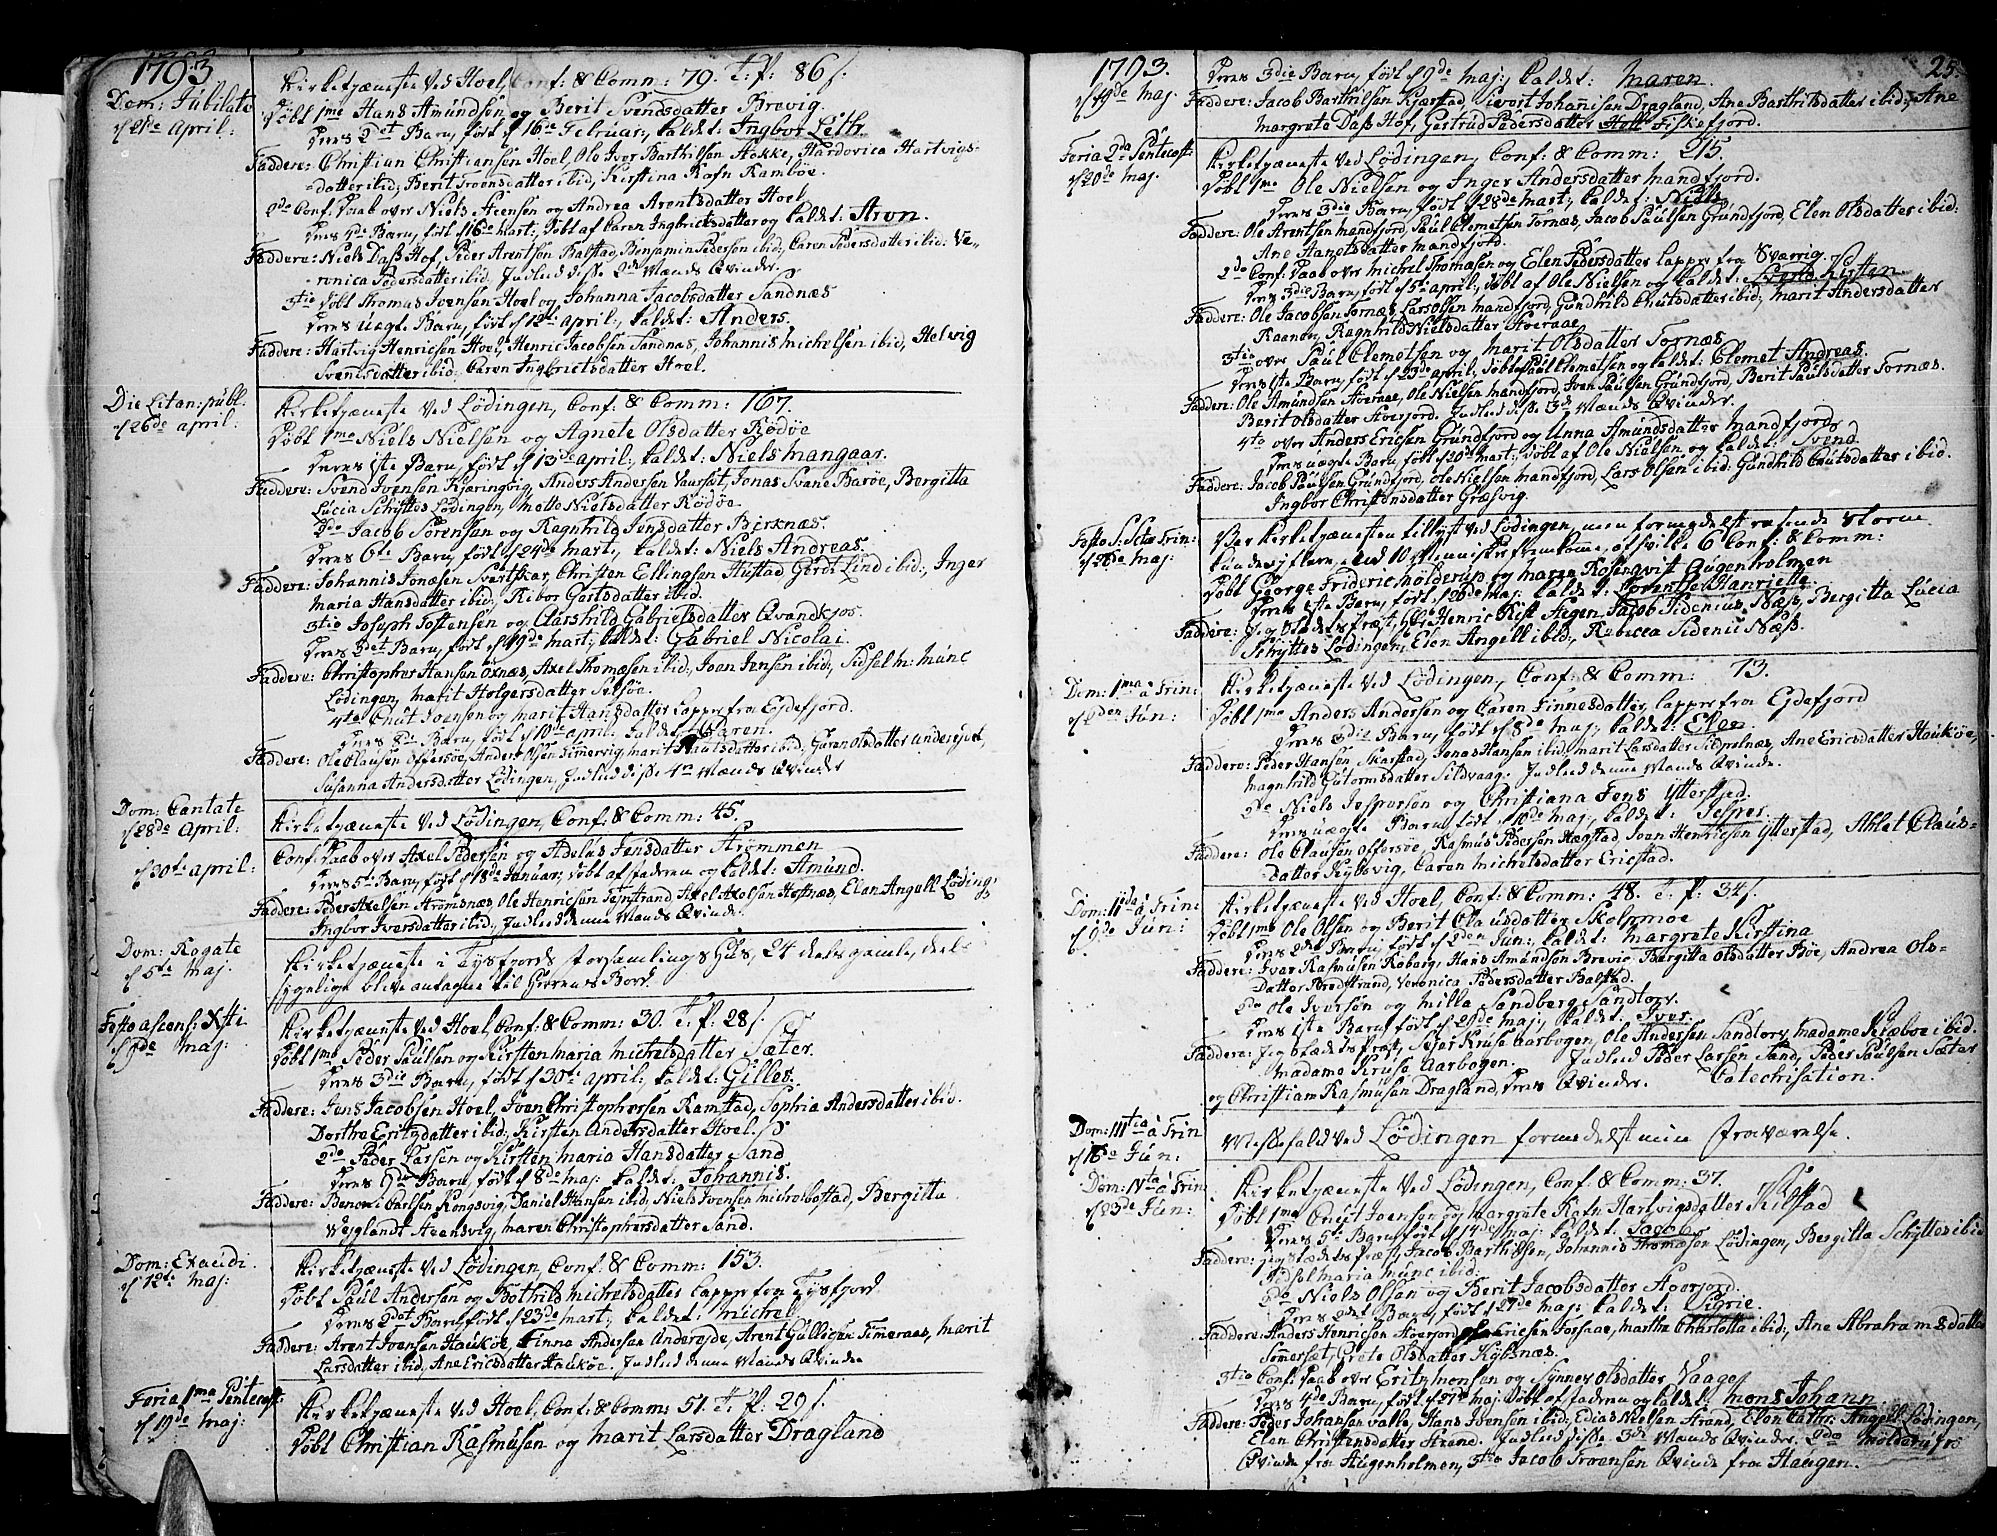 1793
Dom: Jubilate
d 21de April:
Kirketjæneste ved Hoel, Conf: & Comm: 79. T. f: 86 s.
Døbt 1mo Hans Amundsen og Berit Svendsdatter Brevig.
deres 2det Barn, født d 16de Februar, kaldet: Ingbor Leth.
Faddere: Christian Christiansen Hoel, Ole Iver Barthilsen Hokke, Hardovica Hartvigs-
datter ibid; Berit Troensdatter ibid, Kirstina Rafn Ramboe.
2do Conf: Daab over Niels Steensen og Andrea Arentsdatter Hoel
deres 4de Barn, født d 16de Mart: døbt af Caren Ingbrictsdatter og kaldet: Aron.
Faddere: Niels Dass Hof, Peder Arentsen Balstad, Benjamin Pedersen ibid; Caren Pedersdatter ibid: Ve-
ronica Pedersdatter ibid; Indled disse 2de Mænds Qvinder.
3tio Døbt Thomas Ivensen Hoel og Johanna Jacobsdatter Sandnæs
deres uægte Barn, født d 12te April, kaldet: Anders.
Faddere: Hartvig Henricsen Hoel, Henric Jacobsen Sandnæs, Johannis Michelsen ibid, Helvig
Svendsdatter ibid: Caren Ingbrictsdatter Hoel.
Die Litan: publ.
d 26de April:
Kirketjæneste ved Lødingen, Conf: & Comm: 167.
Døbt 1mo Niels Nielsen og Agnete Olsdatter Rødøe
deres 1ste Barn, født d 13de April: kaldet: Niels Mangaar.
Faddere: Svend Ivensen Kjæringvig, Anders Andersen Vauset, Jonas Svane Barøe, Bergitta
Lucia Schyttes Lødingen, Mette Nielsdatter Rødøe.
2do Jacob Sørensen og Ragnhild Jensdatter Birknæs.
deres 6te Barn, født d 24de Mart, kaldet: Niels Andreas.
Faddere: Johannis Jonæsen Svartskar, Christen Ellingsen Hustad, Gerdt Lind ibid:, Inger
Maria Hansdatter ibid; Ribor Gertsdatter ibid.
3tio Joseph Tostensen og Aarshild Gabrielsdatter Qvandkjos
deres 3det Barn, født d 19de Mart; kaldet: Gabriel Nicolai.
Faddere: Christopher Hansen Oxnæs, Axel Thomæsen ibid; Ivan Jensen ibid; Sidsel M: Munc
Lødingen, Marit Holgersdatter Selsøe.
4to Cnut Ivensen og Marit Hansdatter Lapper fra Eydefjord.
deres 8de Barn, født d 10de April, kaldet: Maren.
Faddere: Ole Clausen Offersøe, Anders Olsen Simmervig, Marit Nielsdatter ibid; Caren Olsdatter Andereydet,
Susanna Andersdatter Lødingen, Indled disse 4re Mænds Qvinder
Dom: Cantate
d 28de April:
Kirketjæneste ved Lødingen, Conf: & Comm: 45.
d 30te April:
Conf: Daab over Axel Pedersen og Adelus Jensdatter Strømmen
deres 5te Barn, født d 18de Januar, døbt af faderen og kaldet: Amund.
Faddere: Peder Axelsen Strømsnæs, Ole Henricsen Fenstrand, Axel Axelsen Hofnæs, Elen Angell Lødin-
Ingbor Iversdatter ibid; Indled denne Mands Qvinde.
Dom: Rogate
d 5te Maj.
Kirketjæneste i Tysfjords Forsamlings Huus, 24 dels gamle, dels
sygelige bleve antagne til Herrens Bord.
Festo ascens: Xsti
d 9de Maj:
Kirketjæneste ved Hoel, Conf: & Comm: 30. T. f: 28 s.
Døbt 1mo Peder Paulsen og Kirsten Maria Michelsdatter Sæter.
deres 3die Barn, født d 30te April; kaldet: Gilles.
Faddere: Jens Jacobsen Hoel, Iven Christophersen Ramstad, Sophia Andersdatter ibid.
Dorthe Eritzdatter ibid; Kirsten Andersdatter Hoel.
2do Peder Larsen og Kirsten Maria Hansdatter Sand
deres 9de Barn, født d 8de Maj: kaldet: Johannis.
Faddere: Benoni Carlsen Kongsvig, Daniel Hansen ibid; Niels Ivensen Michelbostad, Bergitta
Weyglandt Steensvig, Maren Christophersdatter Sand.
Dom: Exaudi.
d 12te Maj:
Kirketjæneste ved Lødingen, Conf: & Comm: 153.
Døbt Paul Andersen og Bothild Michelsdatter Lapper fra Tysfjord
deres 2det Barn, født d 23de Mart; kaldet: Michel
Faddere: Arent Ivensen Haukøe, Finna Andersen Andereyde, Arent Gullicsen Timeraas, Marit
Larsdatter ibid; Ane Ericsdatter Haukøe. Indled denne Mands Qvinde
Feria 1ma Pentecost:
d 19de Maj:
Kirketjæneste ved Hoel, Conf: & Comm: 51. T. f: 29 s.
Døbt Christian Rasmusen og Marit Larsdatter Dragland
1793.
25.
d 19de Maj.
deres 3die Barn, født d 9de Maj; kaldet: Maren.
Faddere: Jacob Barthilsen Kjæstad, Sivert Johanisen Dragland, Ane Barthilsdatter ibid; Ane
Margrete Dass Hof; Gertrud Pedersdatter Fiskefjord.
Feria 2da Pentecost:
d 20de Maj.
Kirketjæneste ved Lødingen, Conf: & Comm: 215.
Døbt 1mo Ole Nielsen og Inger Andersdatter Mandfjord.
deres 3die Barn, født d 28de Mart; kaldet: Niels
Faddere: Ole Arentsen Mandfjord, Paul Clemetsen Tornæs, Jacob Paulsen Grundfjord, Elen Olsdatter ibid;
Ane Hansdatter Mandfjord.
2do Conf: Daab over Michel Thomasen og Elen Pedersdatter Lapper fra Sværrig.
deres 3die Barn, født d 5te April, døbt af Ole Nielsen og kaldet: Svend Kirsten.
Faddere: Ole Jacobsen Tornæs, Lars Olsen Mandfjord; Gundhild Cnutsdatter ibid; Marit Andersdatter
Kaanøe, Ragnhild Nielsdatter Hoeraae
3tio over Paul Clemetsen og Marit Olsdatter Tornæs
deres 1ste Barn, født d 23de April, døbt af Paul Clemetsen og kaldet: Clemet Andreas.
Faddere: Ole Amundsen Hoeraae, Ole Nielsen Mandfjord, Iven Paulsen Grundfjord, Berit Paulsdatter Tornæs.
Berit Olsdatter Hoerfjord. Indled disse 3de Mænds Qvinder.
4to over Anders Ericsen Grundfjord og Unna Amundsdatter Mandfjord
deres uægte Barn, født d 20de Mart; døbt af Ole Nielsen og kaldet: Svend.
Faddere: Jacob Paulsen Grundfjord, Ole Nielsen Mandfjord, Lars Olsen ibid: Gundhild Cnutsdatter ibid.
Ingbor Christensdatter Græsvig.
Festo S: Sctæ Trin:
d 26de Maj:
Var Kirketjænesten tillyst ved Lødingen, men formedelst rasende Storm
kunde ej flere end 10 Mennisker fremkomme, af hvilke 6 Conf: & Comm:
Døbt George Frideric Molderup og Maren Rosenqvist Augenholmen
deres 1ste Barn, født d 20de Maj: kaldet: Lorentza Henriette.
Faddere: Jeg Stædets Præst, Hr: Henric Rist Fegen, Jacob Sidenius Næss, Bergitta Lucia
Schyttes Lødingen, Elen Angell ibid, Rebecca Sidenii Næss.
Dom: 1ma à Trin:
d 2den Jun:
Kirketjæneste ved Lødingen, Conf: & Comm: 73.
Døbt 1mo Anders Andersen og Caren Finnesdatter, Lapper fra Eydefjord
deres 3die Barn, født d 8de Maj; kaldet: Elen
Faddere: Peder Hansen Skarstad, Jonas Hansen ibid; Marit Larsdatter Sildpolnæs, Ane Ericsdatter Haukøe,
Magnhild Gutormsdatter Sildvaag. Indled denne Mands Qvinde.
2do Niels Jespersen og Christiana Fens Ytterstad.
deres uægte Barn, født d 10de Maj; kaldet: Jesper.
Faddere: Ole Clausen Offersøe, Rasmus Pedersen Hægstad, Iven Henricsen Ytterstad, Ahlet Claus-
datter Reybovig, Caren Michelsdatter Ericstad.
Dom: IIda à Trin:
d 9de Jun:
Kirketjæneste ved Hoel, Conf: & Comm: 48. T. f: 34 s.
Døbt 1mo Ole Olsen og Berit Clausdatter Skolpmoe
deres 2det Barn, født d 2den Jun; kaldet: Margrete Kirstina
Faddere: Ivar Rasmusen Roberg, Hans Amundsen Brevig, Bergitta Olsdatter Bøe, Andrea Ols-
datter Bredstrand, Veronica Pedersdatter Balstad.
2do Ole Iversen og Milla Sandberg Sandtorv.
deres 1ste Barn født d 29de Maj; kaldet: Iver.
Faddere: Jeg Stædets Præst, Sejer Kruse Aarbogen, Ole Andersen Sandtorv, Madame Schæboe ibid.
Madame Kruse Aarbogen. Indled Peder Larsen Sand, Peder Paulsen Sæter
og Christian Rasmusen Dragland, deres Qvinder. Catechisation.
Dom: IIItia à Trin
d 16de Jun:
Messefald ved Lødingen formedelst min Fraværelse.
Dom: IVta à Trin:
d 23de Jun:
Kirketjæneste ved Lødingen, Conf: & Comm: 37.
Døbt 1mo Cnut Ivensen og Margrete Rafn Hartvigsdatter Keilstad
deres 5te Barn, født d 14de Maj, kaldet: Jacob
Faddere: Jeg Stædets Præst, Jacob Barthilsen, Johannis Thomæsen Lødingen, Bergitta Schyttes ibid.
Sidsel Maria Munc ibid:
2do Niels Olsen og Berit Jacobsdatter Hoerfjord.
deres 2det Barn, født d 27de Maj; kaldet: Sigrie.
Faddere: Anders Henricsen Hoerfjord, Ericsen Forsaae, Martha Charlotta ibid; Ane Abrahamsdatter
Somerset, Grete Olsdatter Kybsnæs.
3tio Conf: Daab over Eritz Monsen og Synnev Olsdatter Vaage
deres 4de Barn, født d 27de Maj døbt af faderen og kaldet: Mons Johann
Faddere: Peder Johansen Valle, Hans Ivensen ibid, Edias Nielsen Strand, Elen Cathr: Angell Lødingen,
Elen Christensdatter Strand. Indled disse 3de Mænds Qvinder. 2do Molderups
Qvinde fra Augenholmen, 3tio Jacob Troensen Qvinde fra Haugen.